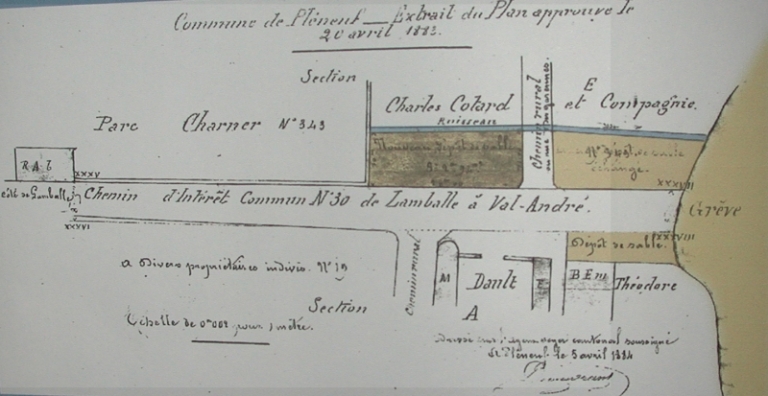 Commune de Pléneuf — Extrait du Plan approuvé le
20 avril 1883.
Section
E
Charles Cotard
et Compagnie.
Parc Charner N° 343
Ruisseau
Chemin rural
Nouveau dépôt de sable
R.A.l
XXXV
XXXVII
côté de Lamballe
Chemin d'Intérêt Commun N°30 de Lamballe à Val-André.
Grève
XXXVI
XXXVIII
Dépôt de sable.
Chemin rural
a Divers propriétaires indivis. N° 19
M
Dault
B Em
Théodore
Section
A
Echelle de 0m002 pour 1 mètre.
Dressé par l'agent voyer cantonal soussigné
à Pléneuf le 5 avril 1884